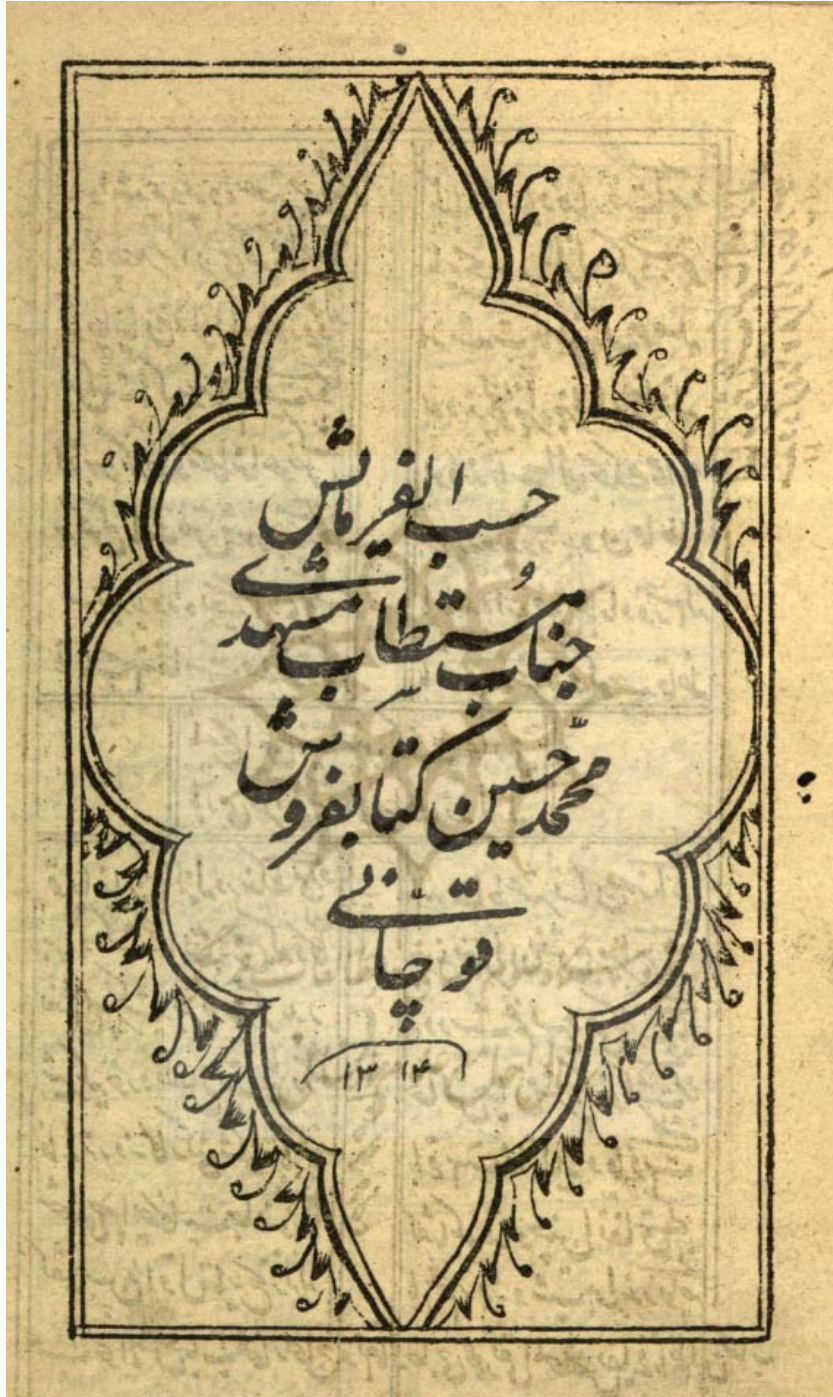 حسب الفرمایش
جناب مستطاب مشهدی
محمد حسین کتابفروش
قوچانی
۱۳۱۴